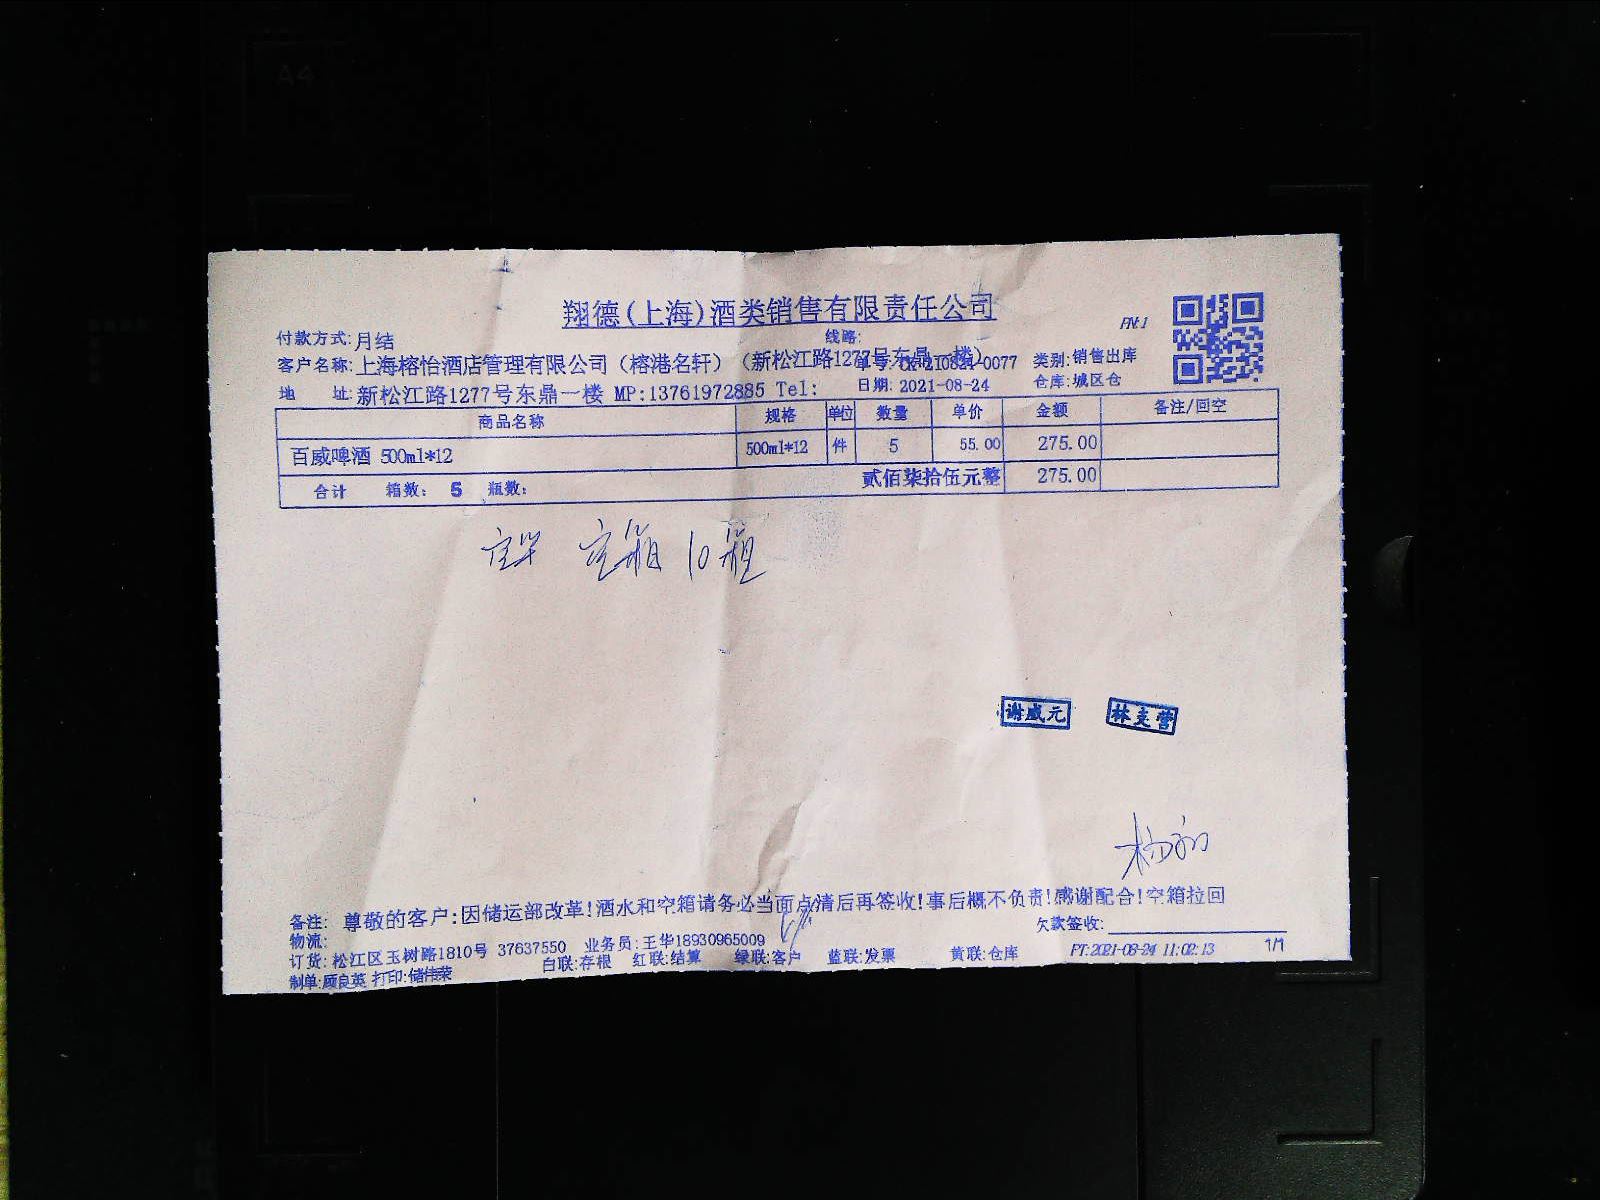 翔德(上海)酒类销售有限责任公司
PN:1
付款方式:月结 线路:
客户名称:上海榕怡酒店管理有限公司（榕港名轩）（新松江路1277号东鼎一楼） 单号:CK-210824-0077 类别:销售出库
地 址:新松江路1277号东鼎一楼 MP:13761972885 Tel: 日期:2021-08-24 仓库:城区仓
商品名称 规格 单位 数量 单价 金额 备注/回空
百威啤酒 500ml*12 500ml*12 件 5 55.00 275.00
合计 箱数: 5 瓶数: 贰佰柒拾伍元整 275.00
空箱 10箱
谢盛元 林支营
备注: 尊敬的客户:因储运部改革!酒水和空箱请务必当面点清后再签收!事后概不负责!感谢配合!空箱拉回
物流: 欠款签收:
订货:松江区玉树路1810号 37637550 业务员:王华18930965009
白联:存根 红联:结算 绿联:客户 蓝联:发票 黄联:仓库 PT:2021-08-24 11:02:13 1/1
制单:顾良英 打印:储伟荣
A4